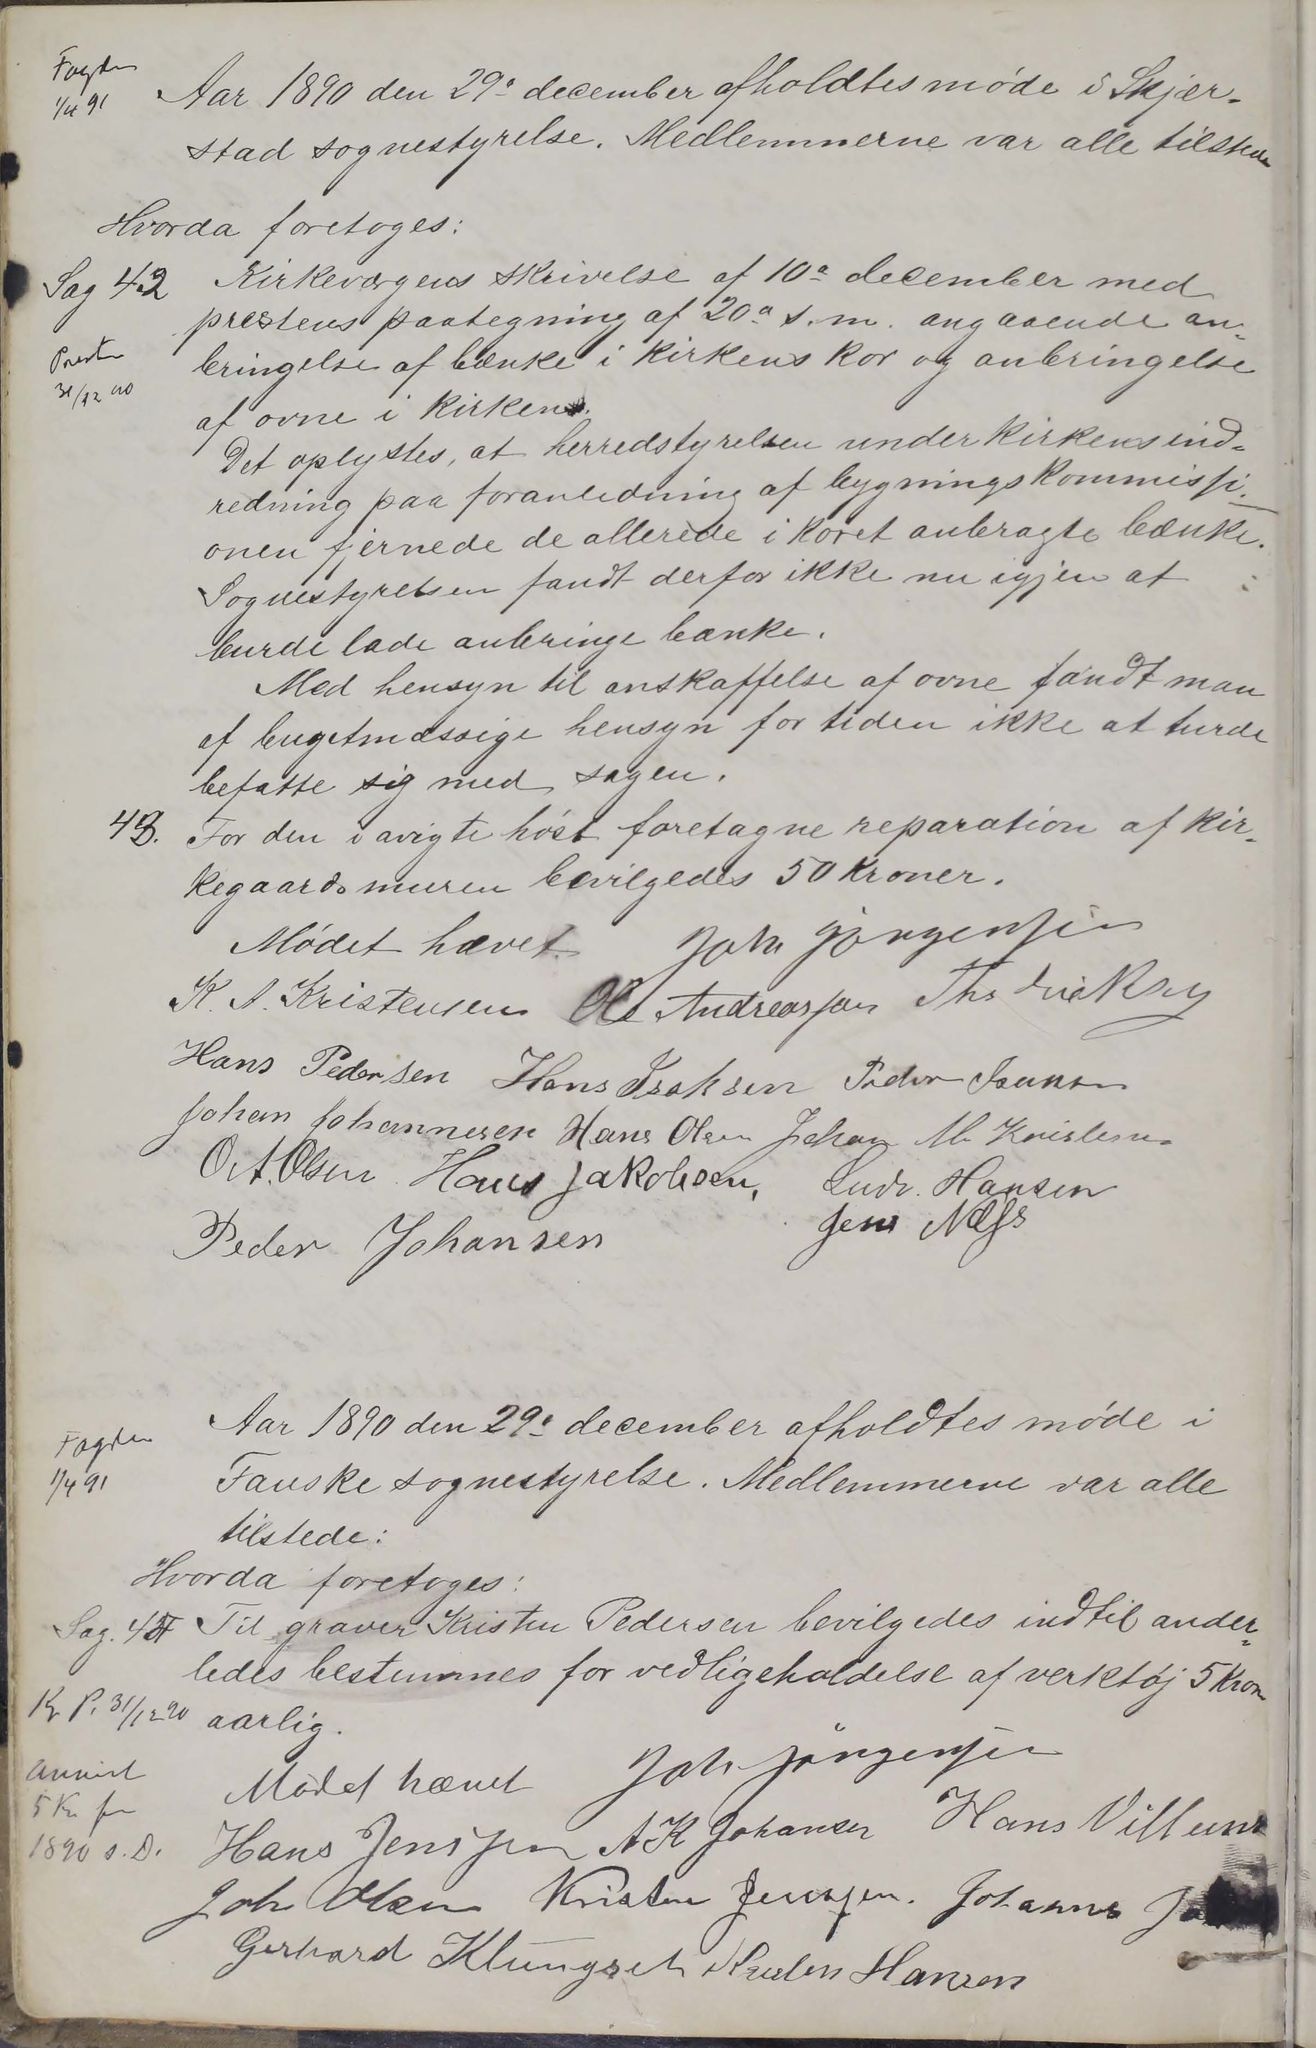 Fogden
1/4 91
Aar 1890 den 29de december afholdtes møde i Skjer-
stad sognestyrelse. Medlemmerne var alle tilstede
Hvorda foretoges:
Sag 42 Kirkeværgens skrivelse af 10de december med
prestens paategning af 20de s.m. angaaende an-
Presten
31/12 90
bringelse af bænke i kirkens kor og anbringelse
af ovne i kirken.
Det oplystes, at herredstyrelsen under kirkens ind-
redning paa foranledning af bygningskommissi-
onen fjernede de allerede i koret anbragte bænke.
Sognestyrelsen fandt derfor ikke nu igjen at
burde lade anbringe bænke.
Med hensyn til anskaffelse af ovne fandt man
af bugetmæssige hensyn for tiden ikke at turde
befatte sig med sagen.
43. For den i avigte høst foretagne reparation af kir-
kegaardsmuren bevilgedes 50 kroner.
Mødet hævet. Joh Jørgensen
K. A. Kristensen Ole Andreassen Ths
Hans Pedersen Hans Isaksen Peder
Johan Johannesen Hans Olsen Johan M. Kristensen
O. A. Olsen Hans Jakobsen, Ludv. Hansen
Peder Johansen Jens Næss
Aar 1890 den 29de december afholdtes møde i
Fogden
1/4 91
Fauske sognestyrelse. Medlemmerne var alle
tilstede:
Hvorda foretoges:
Sag. 44 Til graver Kristen Pedersen bevilgedes indtil ander-
ledes bestemmes for vedligeholdelse af verktøj 5 kron
Kr P. 31/12 90 aarlig.
anvist
5 Kr for
1890 s. D.
Mødet hævet Joh Jørgensen
Hans Jenssen A K Johansen Hans Villums
Joh Olsen Kristen Jenssen. Johannes
Gerhard Klungset Hansen